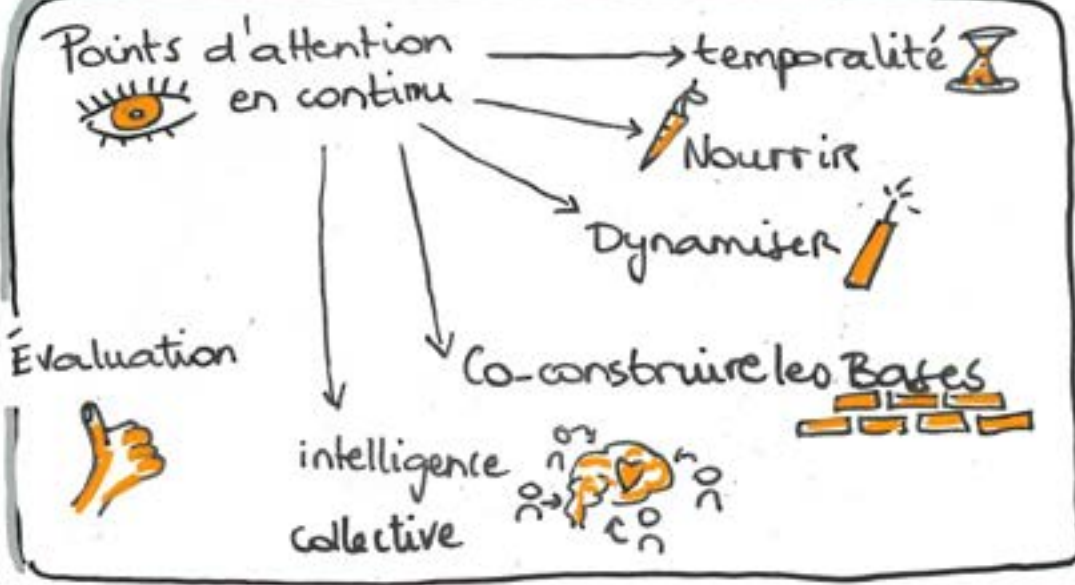 Points d'attention
en continu
temporalité
Nourrir
Dynamiser
Co-construire les Bases
Évaluation
intelligence
collective